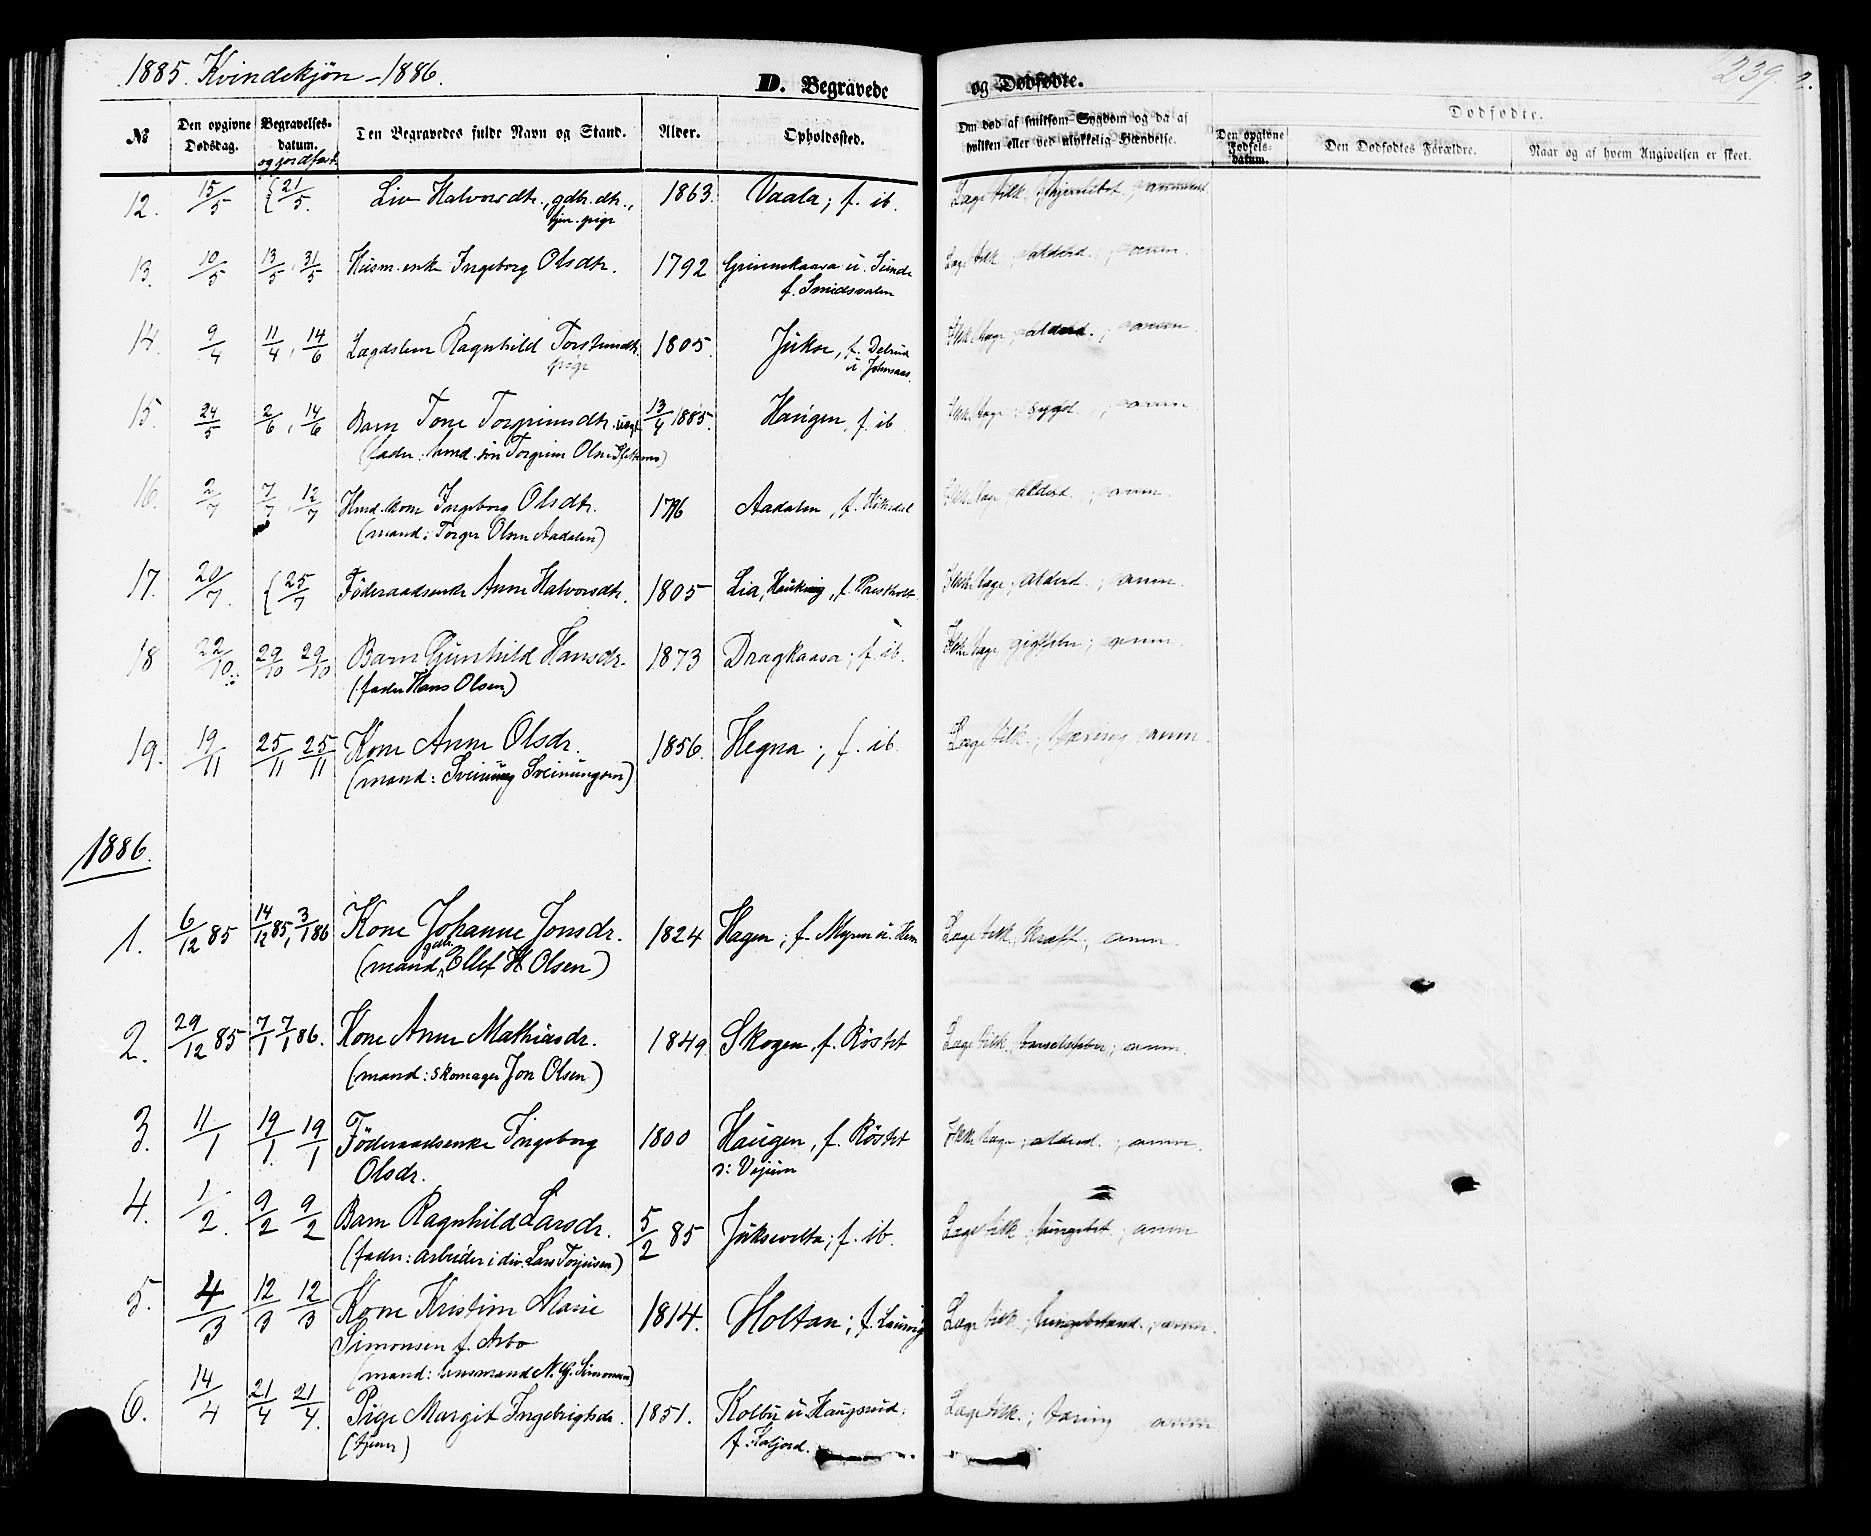 1885. Kvindekjøn - 1886.
D. Begravede og Dødfødte.
239.
№
Den opgivne Dødsdag.
Begravelses-datum. og jordfæst.
Den Begravedes fulde Navn og Stand.
Alder.
Opholdssted.
Om død af smitsom Sygdom og da af hvilken eller ved ulykkelig Hændelse.
Dødfødte.
Den opgivne Fødsels-datum.
Den Dødfødtes Forældre.
Naar og af hvem Angivelsen er skeet.
12. 15/5 21/5. Liv Halvorsdtr., gdbr. dtr., 1863. Vaala; f. ib. Læge tilk.
tjen. pige
13. 10/5 13/5, 31/5 Husm. enke Ingeborg Olsdtr. 1792 u. Sunde Læge tilk. alderd.; anm.
f. Smedsvalen
14. 9/4 11/4, 14/6 Lægdslem Ragnhild Torstensdtr. 1805. Jukse, f. Ikke læge alderd.; anm.
pige u. Johnsaas
15. 24/5 2/6, 14/6 Barn Tone Torgrimsdtr. uægt 13/4 1885. Haugen, f. ib Ikke læge; anm.
(fader: hmd. søn Torgrim Olsen)
16. 2/7 7/7, 12/7 Hmd. kone Ingeborg Olsdtr. 1796 Aadalen, f. Ikke læge alderd; anm.
(mand: Torger Olsen Aadalen)
17. 20/7. 25/7 Föderaadsenke Anne Halvorsdtr. 1805 Lia, f. Ikke læge; alderd; anm.
18 22/10. 29/10 29/10 Barn Gunhild Hansdr. 1873 Dragkaasa; f. ib. Ikke læge gigtfeber; anm.
(fader Hans Olsen)
19. 19/11 25/11 25/11 Kone Anne Olsdr. 1856. Hegna; f. ib. Læge tilk.; tæring anm.
(mand: Sveinung Sveinungsen)
1886.
1. 6/12 85 14/12 85, 3/1 86 Kone Johanne Jonsdr. 1824 Hagen; f. Myren u. Læge tilk. kræft; anm.
(mand, gdbr. Ellef H Olsen)
2. 29/12 85 7/1 7/1 86. Kone Anne Mathiasdr. 1849 Skogen, f. Röstet Læge tilk. barselsfeber; anm.
(mand: skomager Jon Olsen)
3. 11/1 19/1. 19/1 Föderaadsenke Ingeborg 1800 Haugen, f. Röstet Ikke læge; alderd.; anm.
Olsdr.
4. 1/2. 9/2 9/2 Barn Ragnhild Larsdr. 5/2 85 Juksevelta; f. ib. Læge tilk. lungebet; anm
(fader: arbeider i div. Lars Torjusen)
5. 4/3 12/3 12/3 Kone Kristine Marie 1814. Holtan; f. Laurvig Læge tilk.; lungebetænd.; anm.
Simonsen f. Arbo
(mand: lensmand N. G. Simonsen)
6. 14/4 21/4 21/4. Pige Margit Ingebrigtsdr. 1851. Kolbu u. Haugsrud; Læge tilk.; tæring anm
(tjener) f.